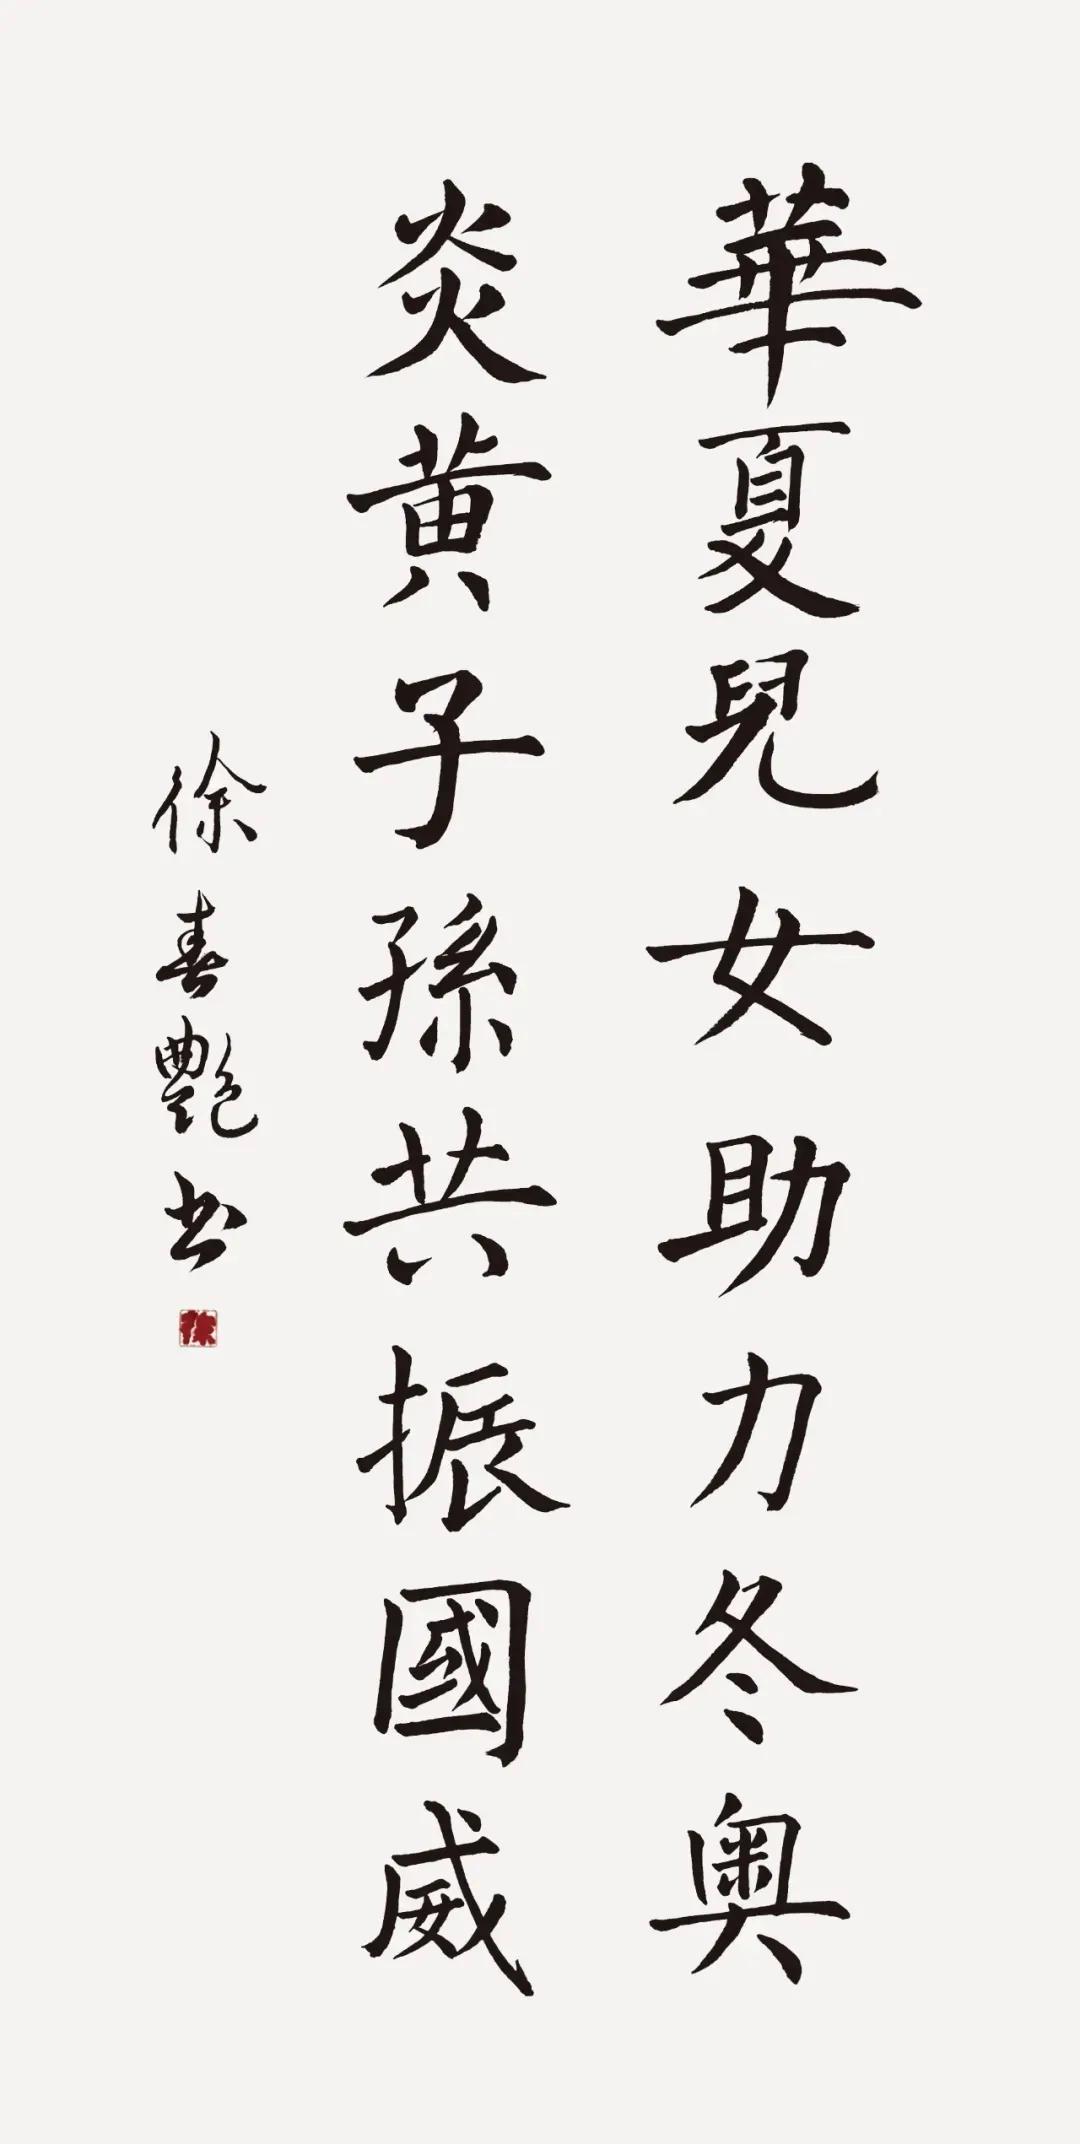 華夏兒女助力冬奥
炎黄子孫共振國威
徐春艷书